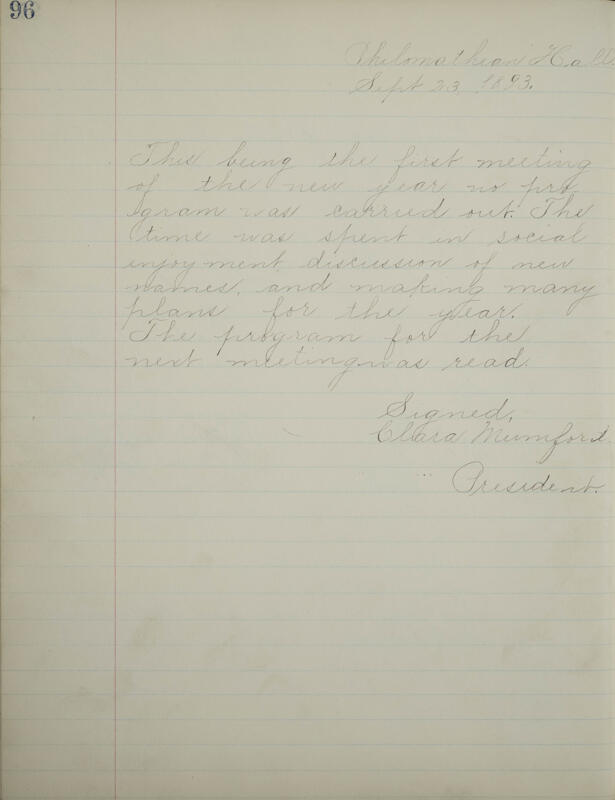 96
Philomathean Hall
Sept 23, 1893.
This being the first meeting
of the new year no pro
gram was carried out. The
time was spent in social
enjoyment discussion of new
names, and making many
plans for the year.
The program for the
next meeting was read.
Signed,
Clara Mumford.
President.